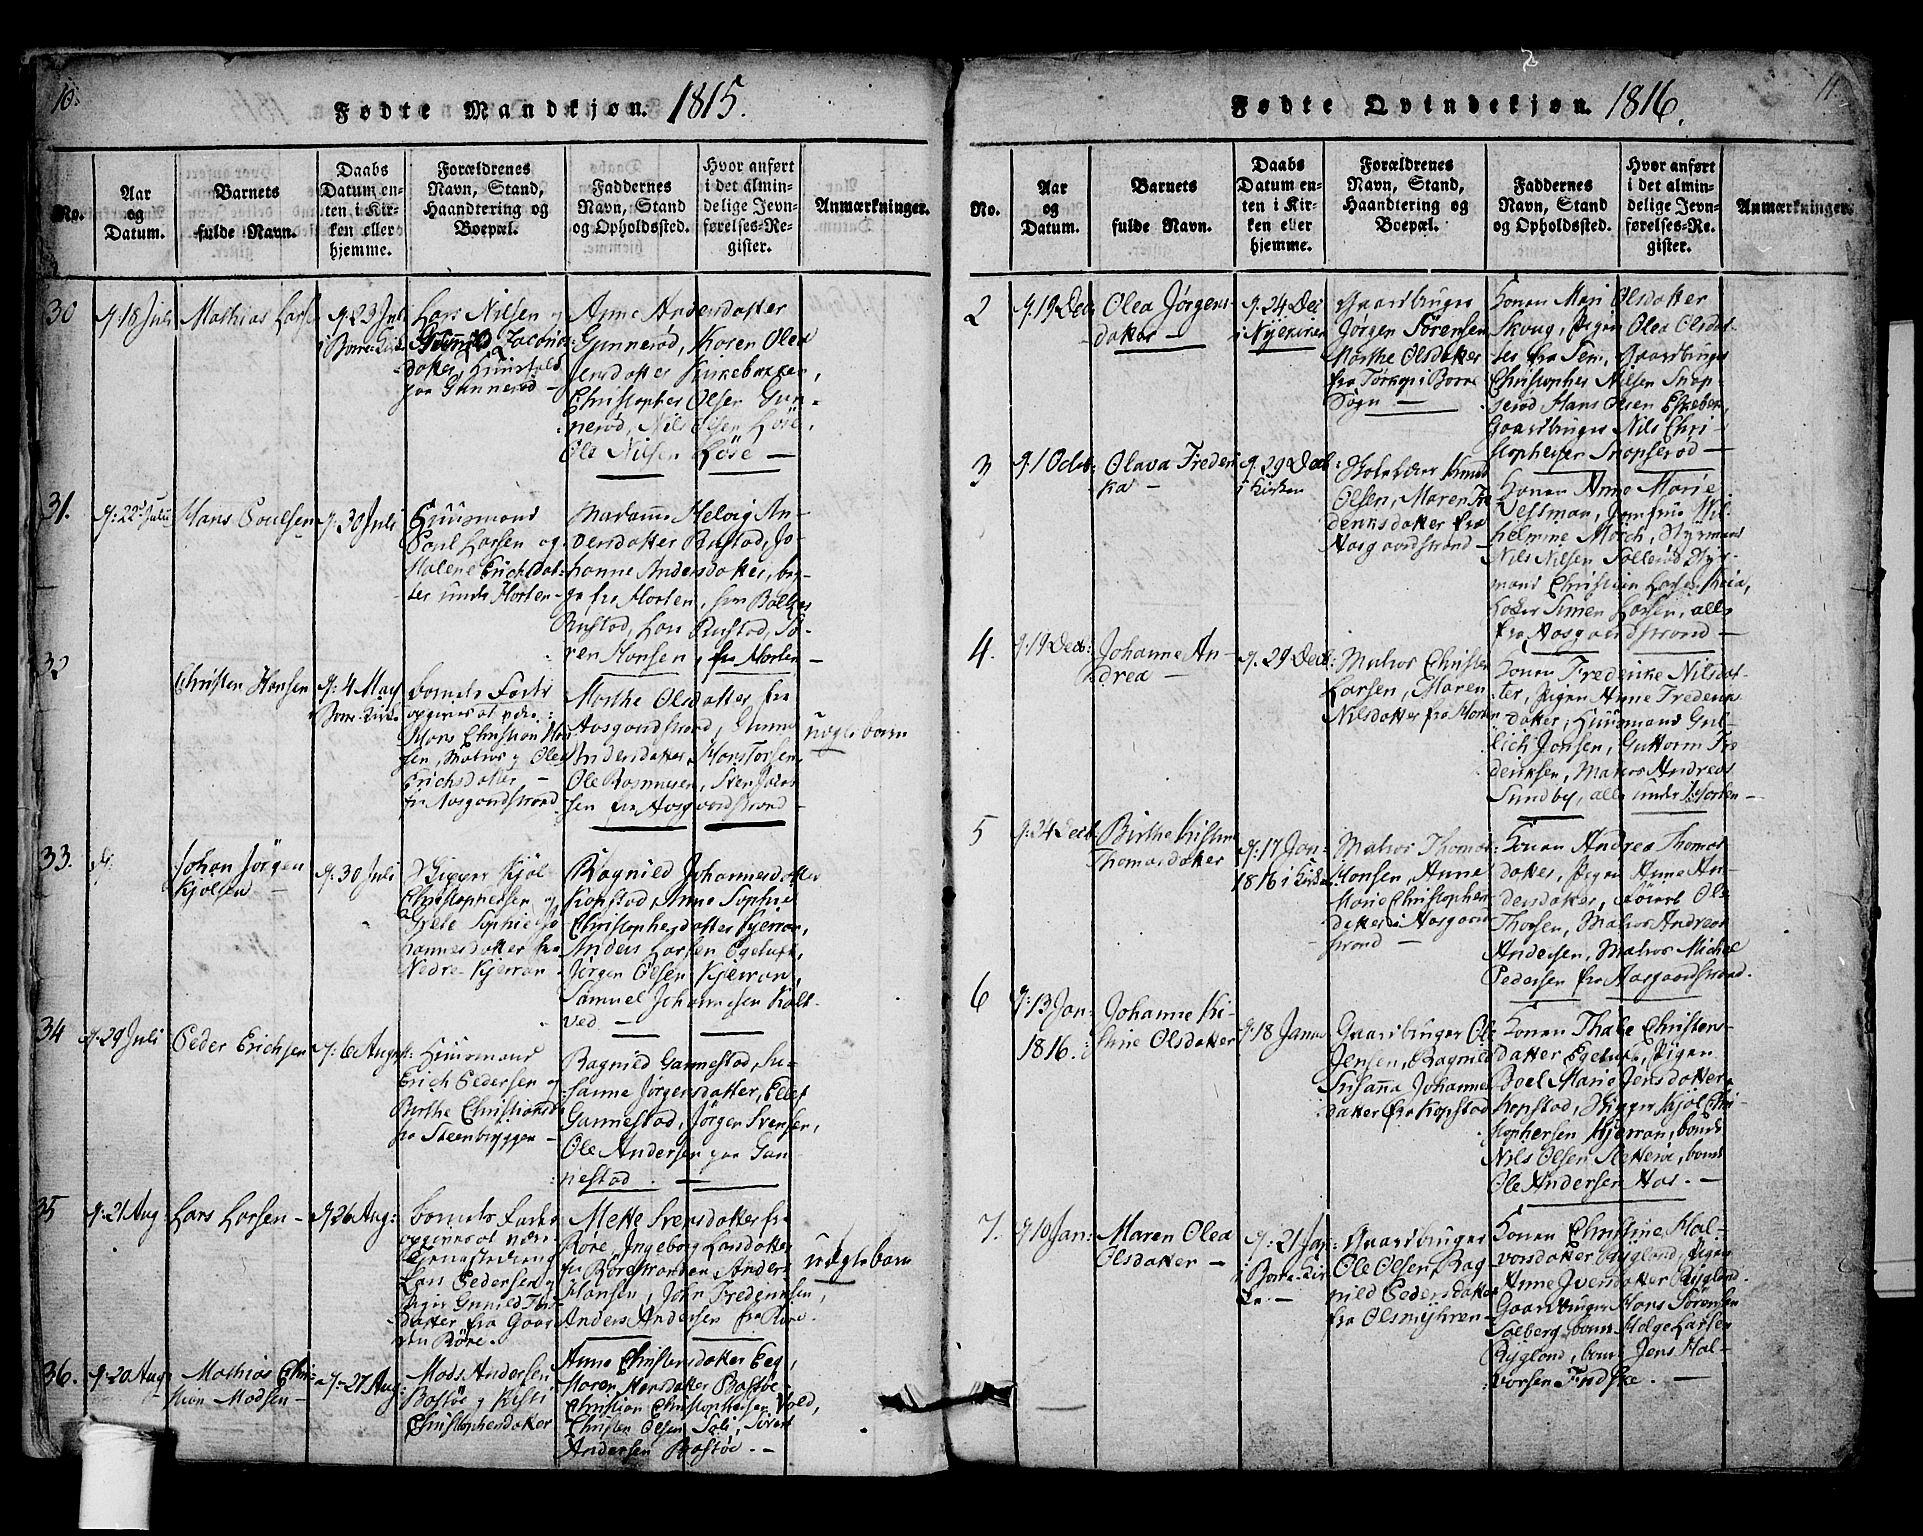 10.
Fødte Mandkjøn. 1815.
No.
Aar
og
Datum.
Barnets
fulde Navn.
Daabs
Datum en-
ten i Kir-
ken eller
hjemme.
Forældrenes
Navn, Stand,
Haandtering og
Boepæl.
Faddernes
Navn, Stand
og Opholdssted.
Hvor anført
i det almin-
delige Jevn-
førelses-Re-
gister.
Anmærkninger.
30
d. 18 Juli
Mathias Larse
d. 23 Juli
i Borre Kirk
Lars Nilsen og
Jacobs
datter, Huusfolk
paa Gunnerød -
Anne Andersdatter
Gunnerød, Karen Olea
Jensdatter Kirkebakken,
Christopher Olsen Gun-
nerød, Nils Olsen Løre,
Ole Nilsen Løre -
31.
d. 22 Juli
Hans Poulsen
d. 30 Juli
Huusmand
Poul Larsen og
Malene Erichsdat-
ter under Horten -
Madame Helvig An-
dersdatter Rustad, Jo-
hanne Andersdatter, beg-
ge fra Horten, Hr Balkes
Rustad, Lars Rustad, Sø-
ren Hansen, fra Horten -
32
Christen Hansen
d. 4 May
Borre Kirke
barnets Fader
opgives at være
Hans Christian Han
sen, Matros og Olea
Erichsdatter -
fra Aasgaardstrand
Marthe Olsdatter fra
Aasgaardstrand, Gunne
Andersdatter, Hans Torsen
Ole Rasmusen, Sven Jocob
sen fra Aasgaardstrand -
uægte barn
33.
Johan Jörgen
Kjølsen -
d. 30 Juli
Skipper Kjøl
Christophersen og
Grete Sophie Jo
hannesdatter fra
Nedre Kjerran
Ragnild Johannesdatter
Kopstad, Anne Sophie
Christophersdatter Kjerran,
Anders Larsen Egetuft,
Jørgen Olsen Kjerran,
Samuel Johannesen Kalt-
ved -
34
d. 29 Juli
Peder Erichsen
d. 6 August
Huusmand
Erich Pedersen og
Birthe Christiansd
fra Steenbryggen -
Ragnild Gannestad, Su-
sanne Jørgensdatter, Ellef
Gannestad, Jørgen Svensen,
Ole Andersen paa Gan-
nestad. -
35
d. 21 Aug
Lars Larsen -
d. 26 Aug:
barnets Fader
opgives at være
Tjenestedreng
Lars Pedersen og
Pigen Gunild Thor
datter fra Gaar
den Røre.
Mette Svensdatter fra
Røre, Ingeborg Larsdatter
fra Borrestranden Anders
Hansen, John Frederiksen,
Anders Andersen fra Røre.
uægte barn
36.
d. 20 Aug
Mathias Chri-
stian Madsen -
d. 27 Aug
Mads Andersen
Bastøe og Kisti
Christophersdatter
Anne Christensdatter Eeg,
Maren Hansdatter Bastøe,
Christian Christophersen Vold,
Christen Olsen Sæli, Sivert
Andersen Bastøe. -
11
Fødte Qvindekjøn. 1816.
No.
Aar
og
Datum.
Barnets
fulde Navn.
Daabs
Datum en-
ten i Kir-
ken eller
hjemme.
Forældrenes
Navn, Stand,
Haandtering og
Boepæl.
Faddernes
Navn, Stand
og Opholdssted.
Hvor anført
i det almin-
delige Jevn-
førelses-Re-
gister.
Anmærkninger.
2
d. 19 Dec
Olea Jörgens-
datter -
d. 24 Dec
i Nykirken
Gaardbruger
Jørgen Sørensen
Marthe Olsdatter
fra Tørkop i Borre
Sogn -
Konen Mari Olsdatter
Skoug, Pigen Olea Olsdat-
ter fra Sem, Gaardbruger
Christopher Nilsen Snap-
serød Hans Olsen Eskebek,
Gaardbruger Nils Chri-
stophersen Snapserød -
3
d. 1 Octob:
Olava Frederi
ka -
d. 29 Decb
i Kirken
Knud
Olsen, Maren Fre
deriksdatter fra
Aasgaardstrand -
Konen Anne Marie
Vestman, Jomfrue Wil-
helmine Mørch, Styrmand
Nils Nilsen Sollerød Styr-
mand Christian Larsen
Simen Larsen, alle
fra Aasgaardstrand -
4.
d. 19 Decb:
Johanne An-
drea -
d. 29 Decb:
Matros Christen
Larsen, Maren
Nilsdatter fra Horten
Konen Frederike Nilsdat
ter, Pigen Anne Frederiks
datter, Huusmand Gul-
lich Jonsen, Guttorm Fre
deriksen, Matros Andreas
Sundby, alle under Horten -
5
d. 24 Decb
Birthe Kistine
Thomasdatter
d. 17 Jan:
1816 i Kirken
Matros Thomas
Hansen, Anne
Marie Christophers
datter i Aasgaard
strand -
Konen Andrea Thomas
datter, Pigen Anne An-
dersdatter, Ole
Thorsen, Matros Andreas
Andersen, Matros Michel
Pedersen fra Aasgaardstrand.
6
d. 13 Jan
1816.
Johanne Ki-
stine Olsdatter
d. 18 Janu
Gaardbruger Ole
Jensen, Ragnild
Susanna Johannes
datter fra Kopstad
Konen Thale Christens-
datter Egetuft, Pigen
Boel Marie Jensdatter
Kopstad, Skipper Kjøl Chri-
stophersen Kjerran, bonde
Nils Olsen Sletterø, bonde
Ole Andersen Aas. -
7.
d. 10 Jan:
Maren Olea
Olsdatter -
d. 21 Jan:
i Borre Kir
ke. -
Gaardbruger
Ole Olsen, Rag-
nild Pedersdatter
fra Olsmyhren -
Konen Christine Hal-
vorsdatter Rygland, Pigen
Anne Iversdatter Rygland.
Gaardbruger Hans Sørensen
Solberg, bonde Helge Larsen
Rygland, bonde Jens Hal-
vorsen Fadske. -